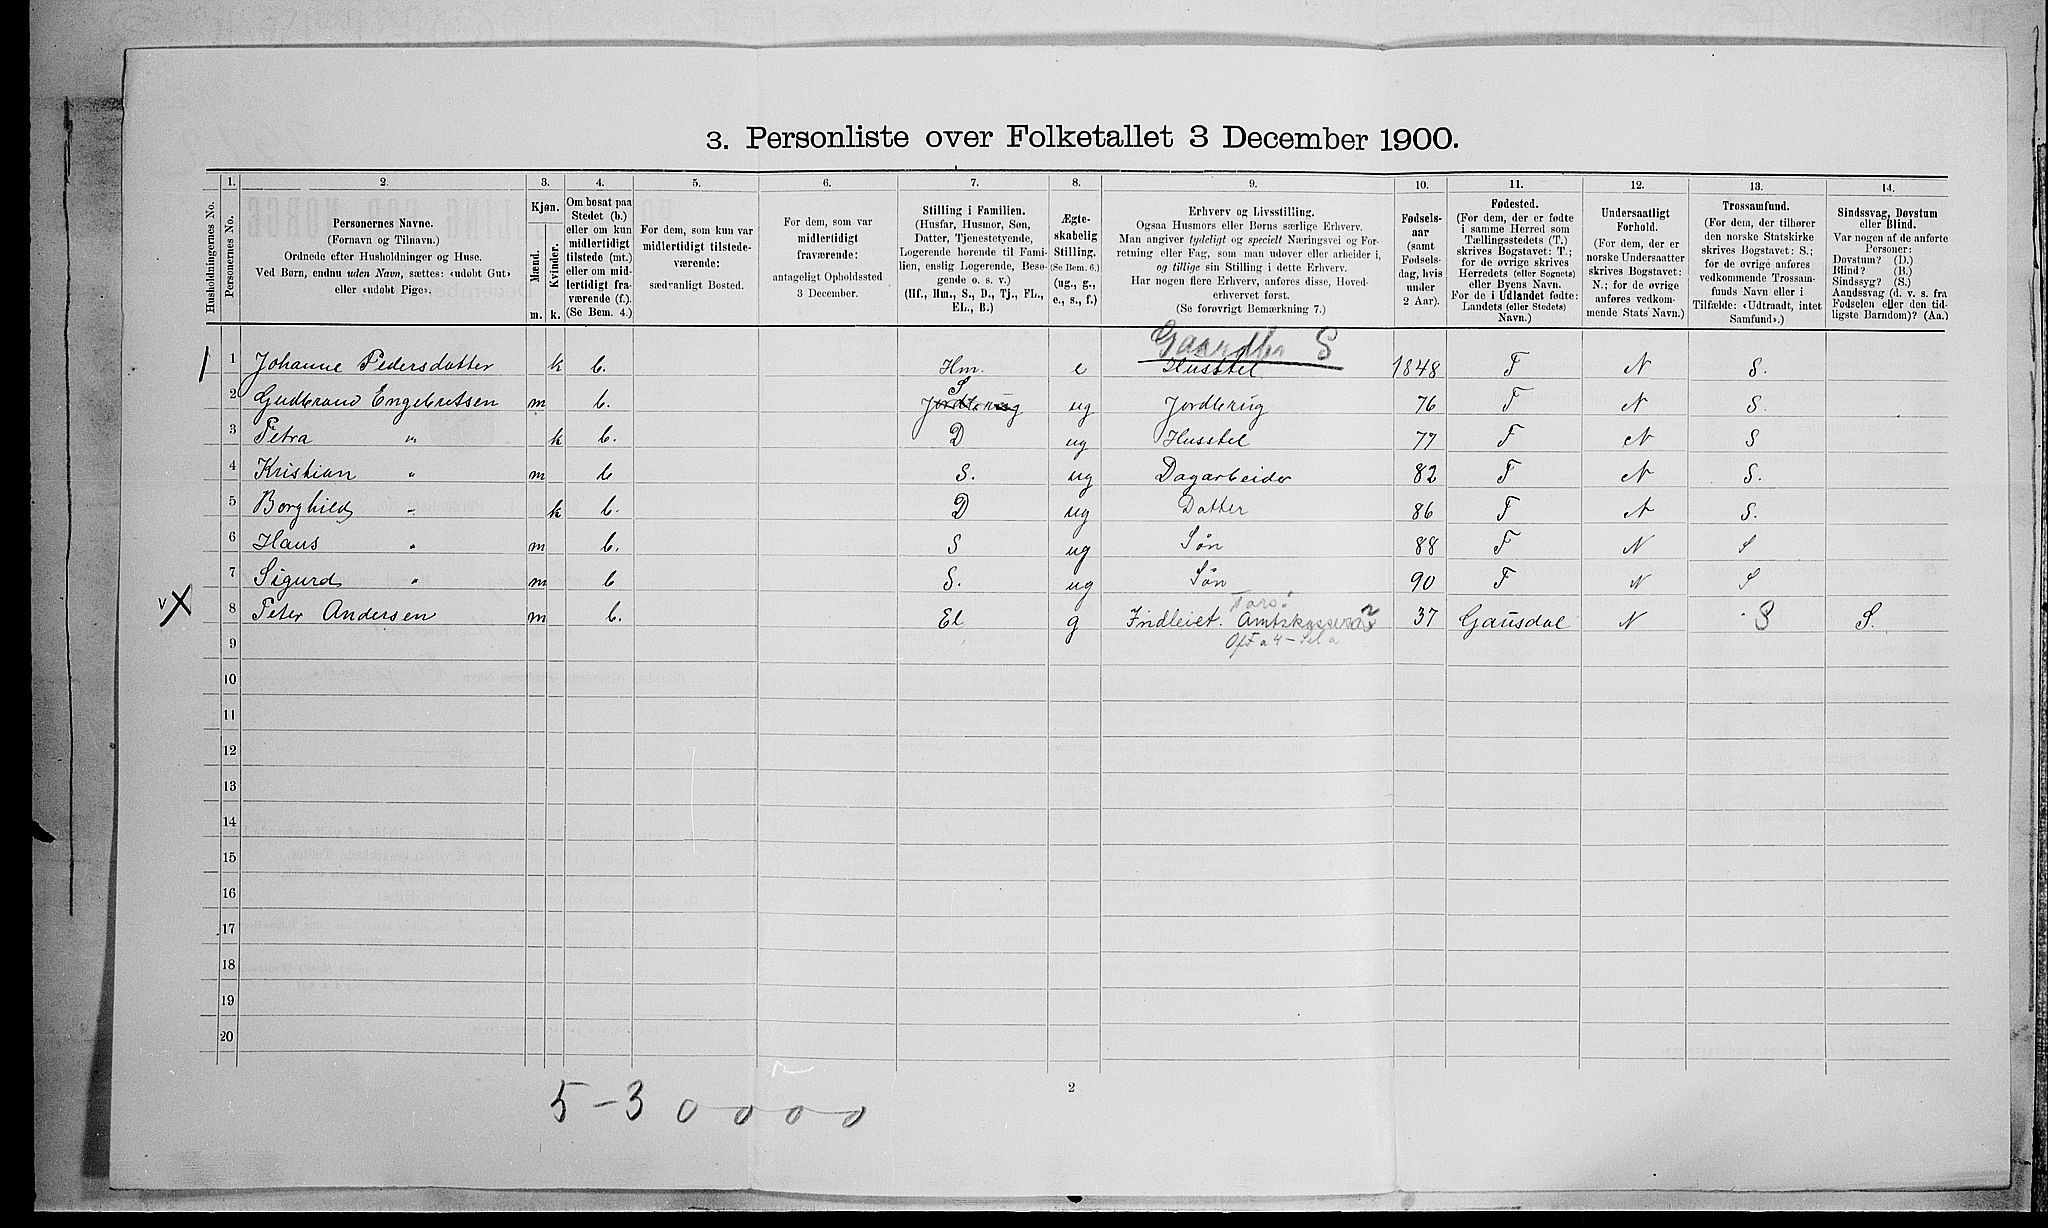 3. Personliste over Folketallet 3 December 1900.
Husholdningernes No.
1. Personernes No.
2. Personernes Navne.
(Fornavn og Tilnavn.)
Ordnede efter Husholdninger og Huse.
Ved Børn, endnu uden Navn, sættes: «udøbt Gut»
eller «udøbt Pige».
3. Kjøn.
Mænd. Kvinder.
m. k.
4. Om bosat paa
Stedet (b.)
eller om kun
midlertidigt
tilstede (mt.)
eller om mid-
lertidigt fra-
værende (f.).
(Se Bem. 4.)
5. For dem, som kun var
midlertidigt tilstede-
værende:
sædvanligt Bosted.
6. For dem, som var
midlertidigt
fraværende:
antageligt Opholdssted
3 December.
7. Stilling i Familien.
(Husfar, Husmor, Søn,
Datter, Tjenestetyende,
Logerende hørende til Fami-
lien, enslig Logerende, Besø-
gende o. s. v.)
(Hf., Hm., S., D., Tj., FL.,
EL., B.)
8. Ægte-
skabelig
Stilling.
(Se Bem. 6.)
(ug., g.,
e., s., f.)
9. Erhverv og Livsstilling.
Ogsaa Husmors eller Børns særlige Erhverv.
Man angiver tydeligt og specielt Næringsvei og For-
retning eller Fag, som man udøver eller arbeider i,
og tillige sin Stilling i dette Erhverv.
Har nogen flere Erhverv, anføres disse, Hoved-
erhvervet først.
(Se forøvrigt Bemærkning 7.)
10. Fødsels-
aar
(samt
Fødsels-
dag, hvis
under
2 Aar).
11. Fødested.
(For dem, der er fødte
i samme Herred som
Tællingsstedets (T.)
skrives Bogstavet: T.;
for de øvrige skrives
Herredets (eller Sognets)
eller Byens Navn.
For de i Udlandet fødte:
Landets (eller Stedets)
Navn.)
12. Undersaatligt
Forhold.
(For dem, der er
norske Undersaatter
skrives Bogstavet:
N.; for de øvrige
anføres vedkom-
mende Stats Navn.)
13. Trossamfund.
(For dem, der tilhører
den norske Statskirke
skrives Bogstavet: S.;
for de øvrige anføres
vedkommende Trossam-
funds Navn eller i
Tilfælde: «Udtraadt, intet
Samfund».)
14. Sindssvag, Døvstum
eller Blind.
Var nogen af de anførte
Personer:
Døvstum? (D.)
Blind? (B.)
Sindssyg? (S.)
Aandssvag (d. v. s. fra
Fødselen eller den tid-
ligste Barndom)? (Aa.)
Gaardbr S
1 Johanne Pedersdatter k b. Hm. e Husstel 1848 T N S.
2 Gudbrand Engebretsen m b. S Jordbrug ug Jordbrug 76 T N S.
3 Petra " k b. D ug Husstel 77 T N S
4 Kristian " m b S. ug Dagarbeider 82 T N S.
5 Borghild " k b. D ug Datter 86 T N S.
6 Hans " m b. S ug Søn 88 T N S
7 Sigurd " m b S. ug Søn 90 T N S
v X 8 Peter Andersen m b. El g Indleiet. 37 Gausdal N S S.
9
10
11
12
13
14
15
16
17
18
19
20
2
5 - 3 0 0 0 0